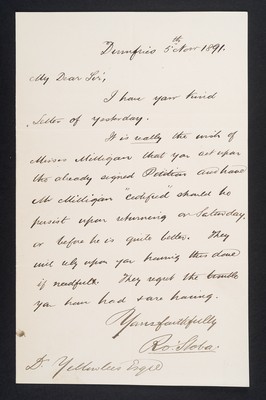 Dumfries 5th Nov 1891.
My Dear Sir,
I have your kind
letter of yesterday.
It is really the wish of
Misses Milligan that you act upon
the already signed Petition and have
Mr Milligan "certified" should he
persist upon returning on Saturday,
or before he is quite better. They
will rely upon you having this done
if needful. They regret the trouble
you have had & are having.
Yours faithfully
Dr. Yellowlees Esqre